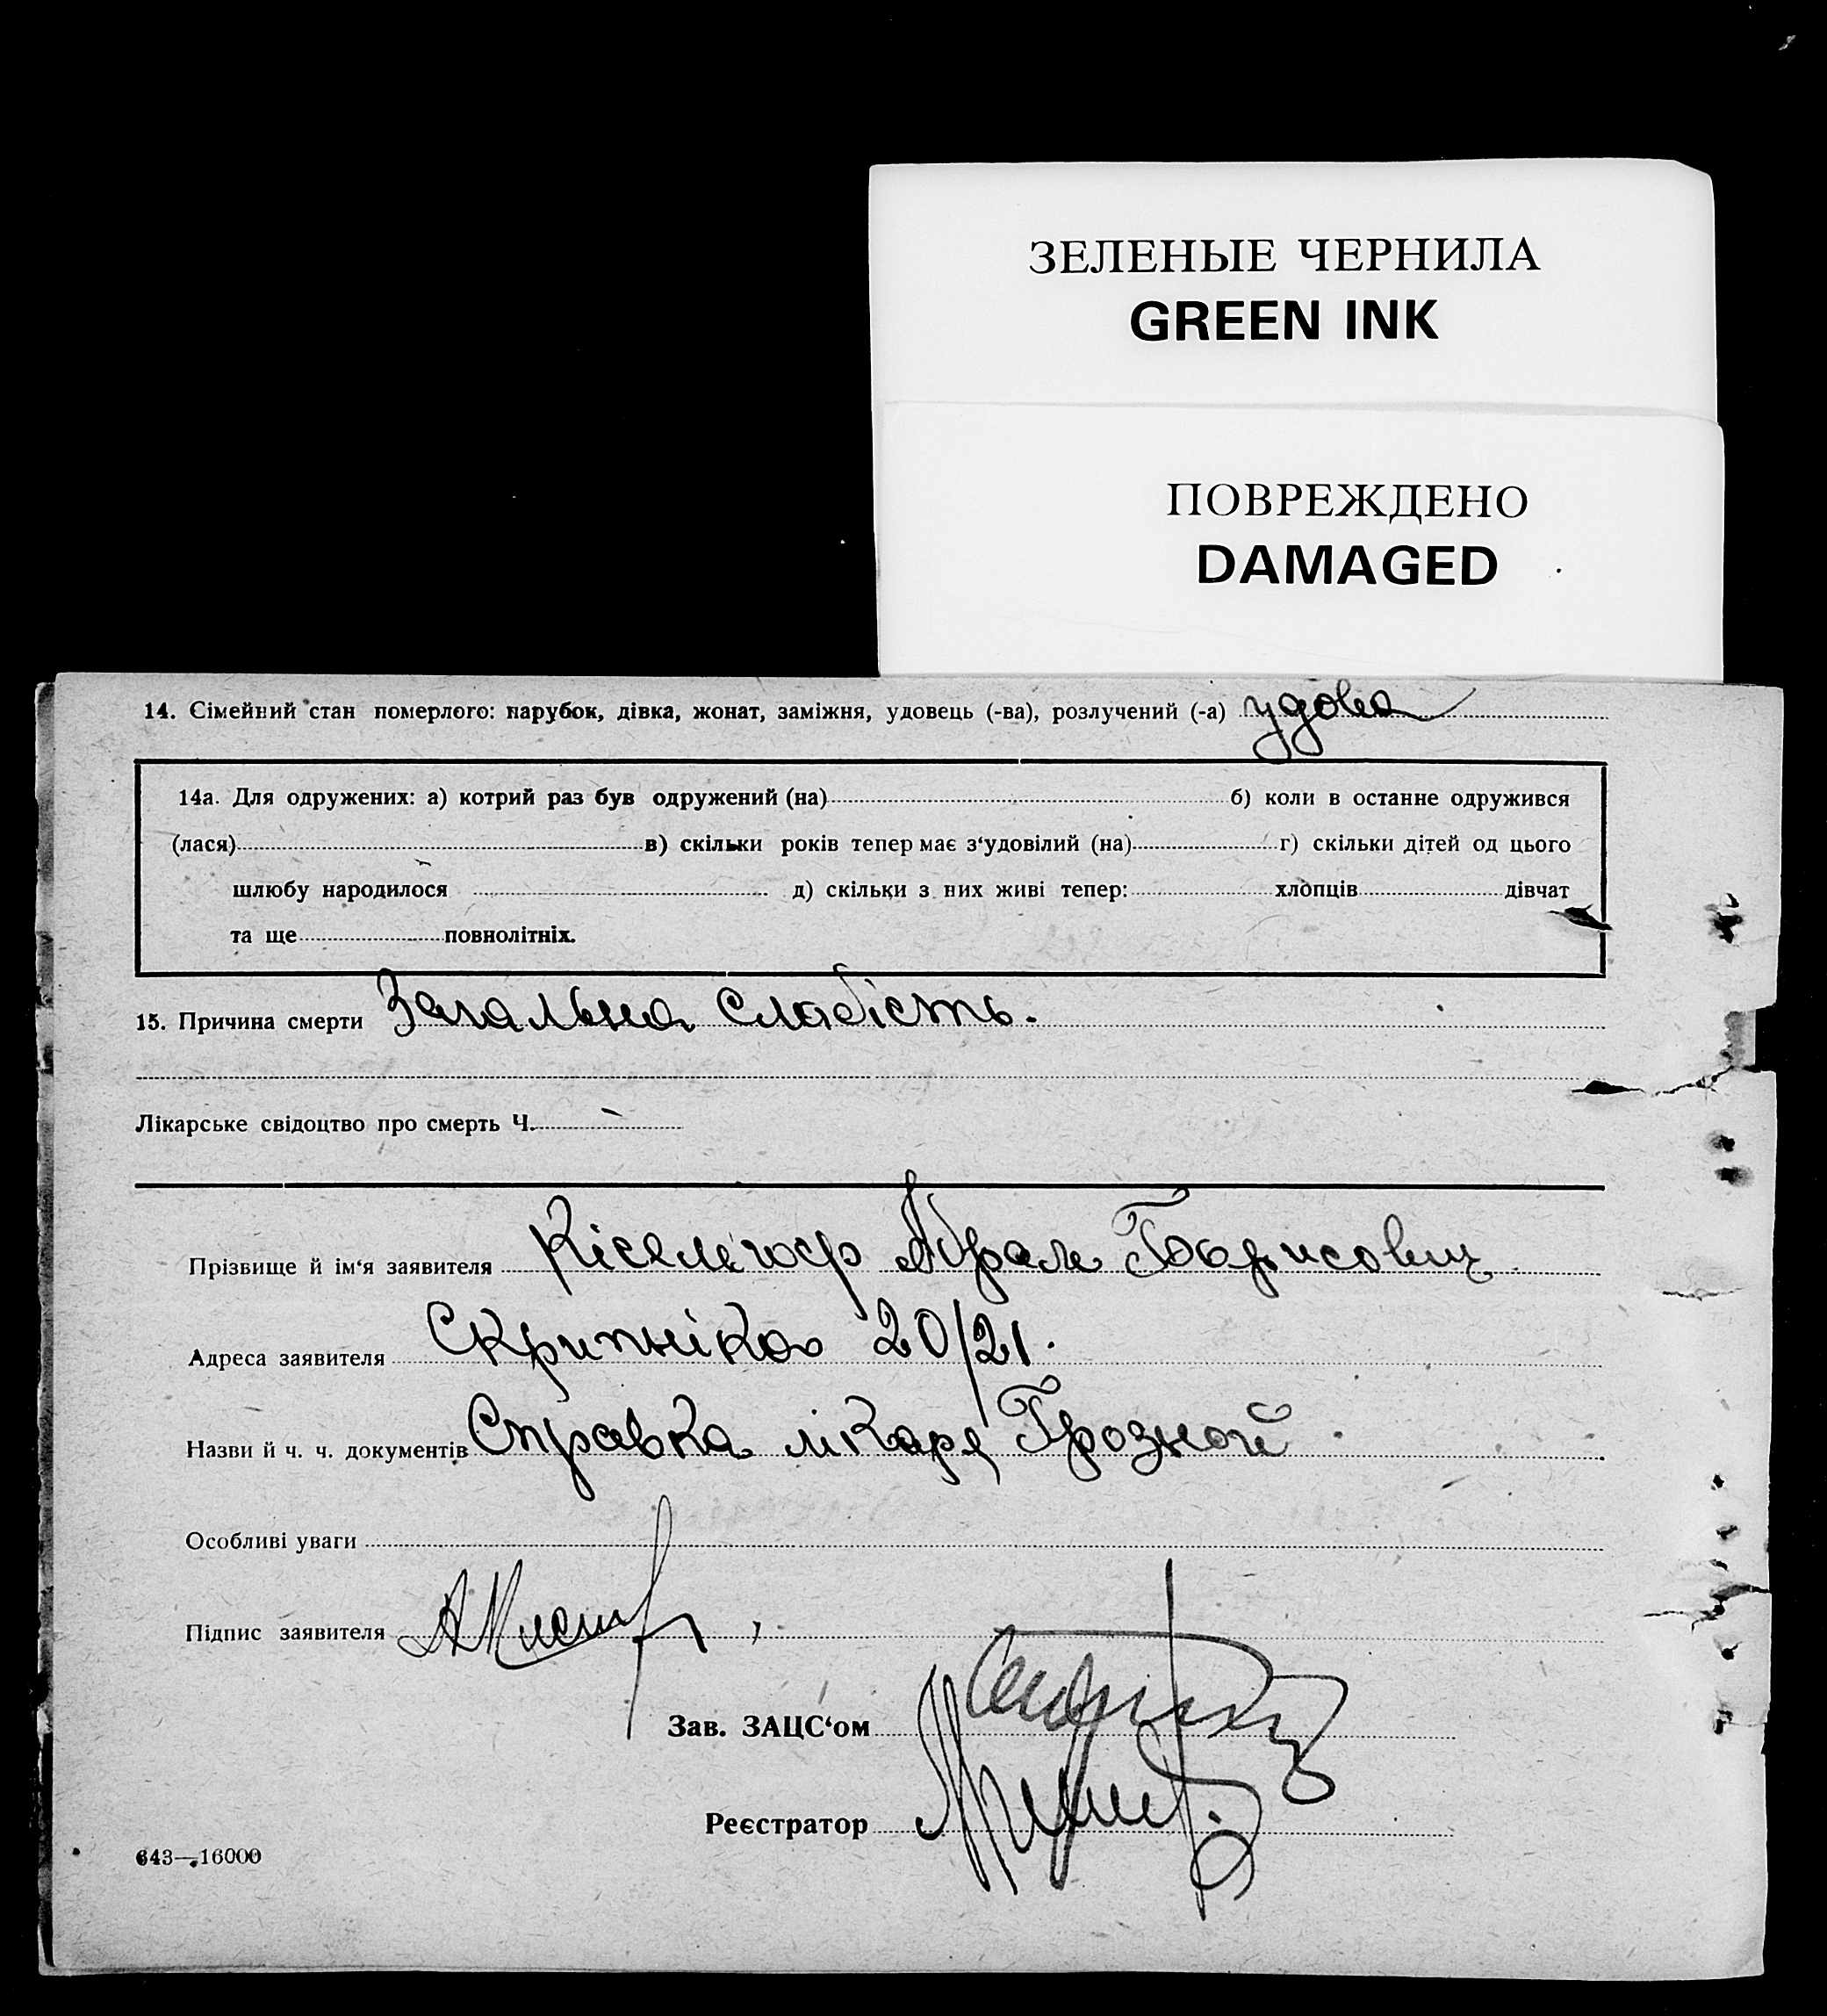 ЗЕЛЕНЫЕ ЧЕРНИЛА
GREEN INK
ПОВРЕЖДЕНО
DAMAGED
14. Сімейний стан померлого: парубок, дівка, жонат, заміжня, удовець (-ва), розлучений (-а) удова
14а. Для одружених: а) котрий раз був одружений (на) б) коли в останнє одружився
(лася) в) скільки років тепер має з‘удовілий (на) г) скільки дітей од цього
шлюбу народилося д) скільки з них живі тепер: хлопців дівчат
та ще повнолітніх.
15. Причина смерти Загальна слабість.
Лікарське свідоцтво про смерть Ч.
Прізвище й ім‘я заявителя Абрам Борисович
Адреса заявителя Скрипніка 20/21.
Назви й ч. ч. документів Справка лікаря Грозной
Особливі уваги
Підпис заявителя
Зав. ЗАЦС‘ом
Реєстратор
643—16000